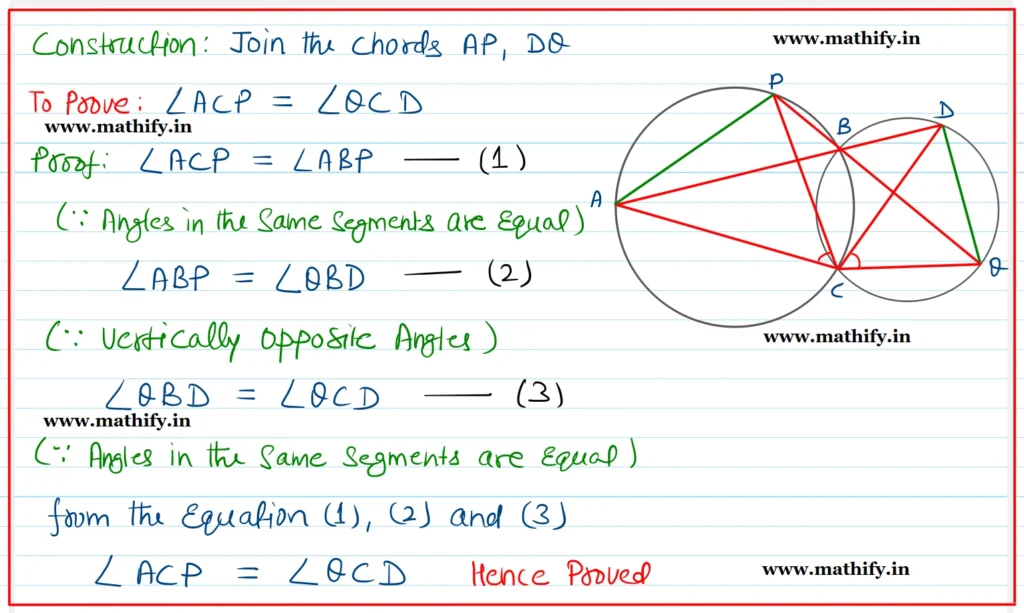 Construction: Join the chords AP, DQ
www.mathify.in
To Prove: ∠ACP = ∠QCD
www.mathify.in
Proof: ∠ACP = ∠ABP — (1)
(∵ Angles in the Same Segments are Equal)
∠ABP = ∠QBD — (2)
(∵ Vertically opposite Angles)
∠QBD = ∠QCD — (3)
www.mathify.in
(∵ Angles in the Same Segments are Equal)
from the Equation (1), (2) and (3)
∠ACP = ∠QCD Hence Proved
P
B
D
A
Q
C
www.mathify.in
www.mathify.in